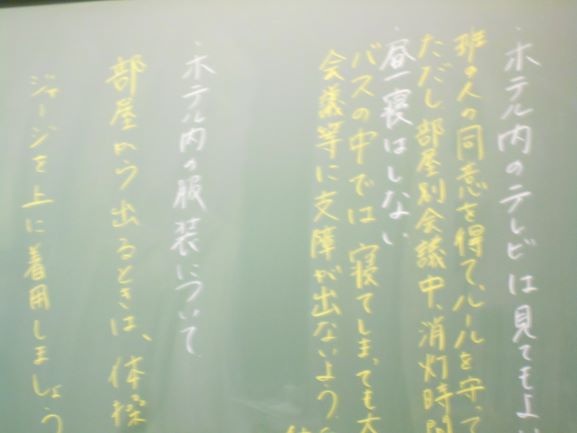 ・ホテル内のテレビは見てもよい
班の人の同意を得て、ルールを守って
ただし部屋別会議中、消灯時間
・昼寝はしない
バスの中では寝てしまっても大
会議等に支障が出ないよう
・ホテル内の服装について
部屋から出るときは、体操
ジャージを上に着用しましょう